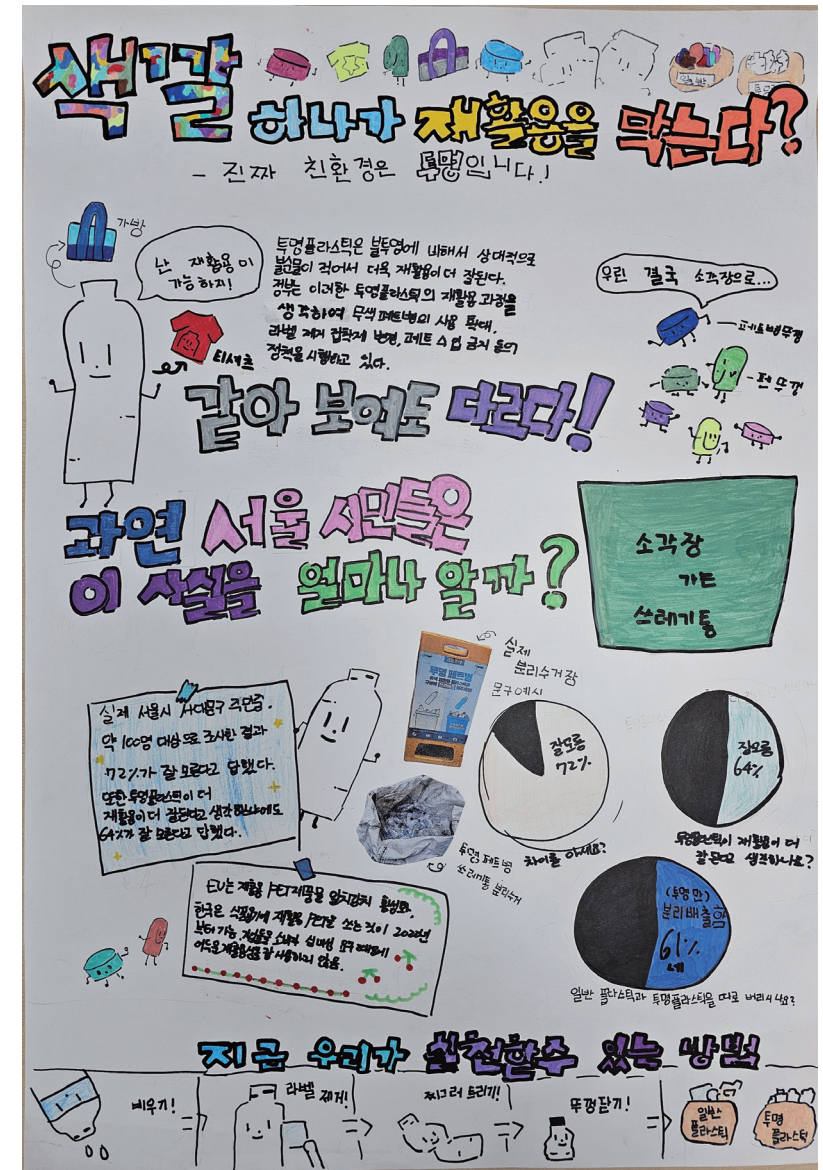 색깔
하나가 재활용을 막는다?
- 진짜 친환경은 투명입니다!
가방
난 재활용이
가능하지!
티셔츠
투명플라스틱은 불투명에 비해서 상대적으로
불순물이 적어서 더욱 재활용이 더 잘된다.
정부는 이러한 투명플라스틱의 재활용 과정을
생각하여 무색페트병의 사용 확대,
라벨 제거 접착제 변경, 페트 수입 금지 등의
정책을 시행하고 있다.
우린 결국 소각장으로...
페트병뚜껑
펜뚜껑
같아 보여도 다르다!
과연 서울 시민들은
이 사실을 얼마나 알까?
소각장
가는
쓰레기통
실제 서울시 서대문구 주민중.
약 100명 대상으로 조사한 결과
72%가 잘 모른다고 답했다.
또한 투명플라스틱이 더
재활용이 더 잘된다고 생각하냐에도
64%가 잘 모른다고 답했다.
실제
분리수거장
문구예시
투명 페트병
투명 페트병
쓰레기통 분리수거
잘모름
72%
차이를 아세요?
잘모름
64%
투명플라스틱이 재활용이 더
잘된다고 생각하나요?
(투명만)
분리배출함
61%
일반 플라스틱과 투명플라스틱을 따로 버리시나요?
EU는 재활용 PET제품을
한국은 식품용기에 재활용 PET를 쓰는것이 2022년
부터 가능
지금 우리가 실천할수 있는 방법
비우기!
라벨 제거!
찌그러 트리기!
뚜껑닫기!
일반
플라스틱
투명
플라스틱